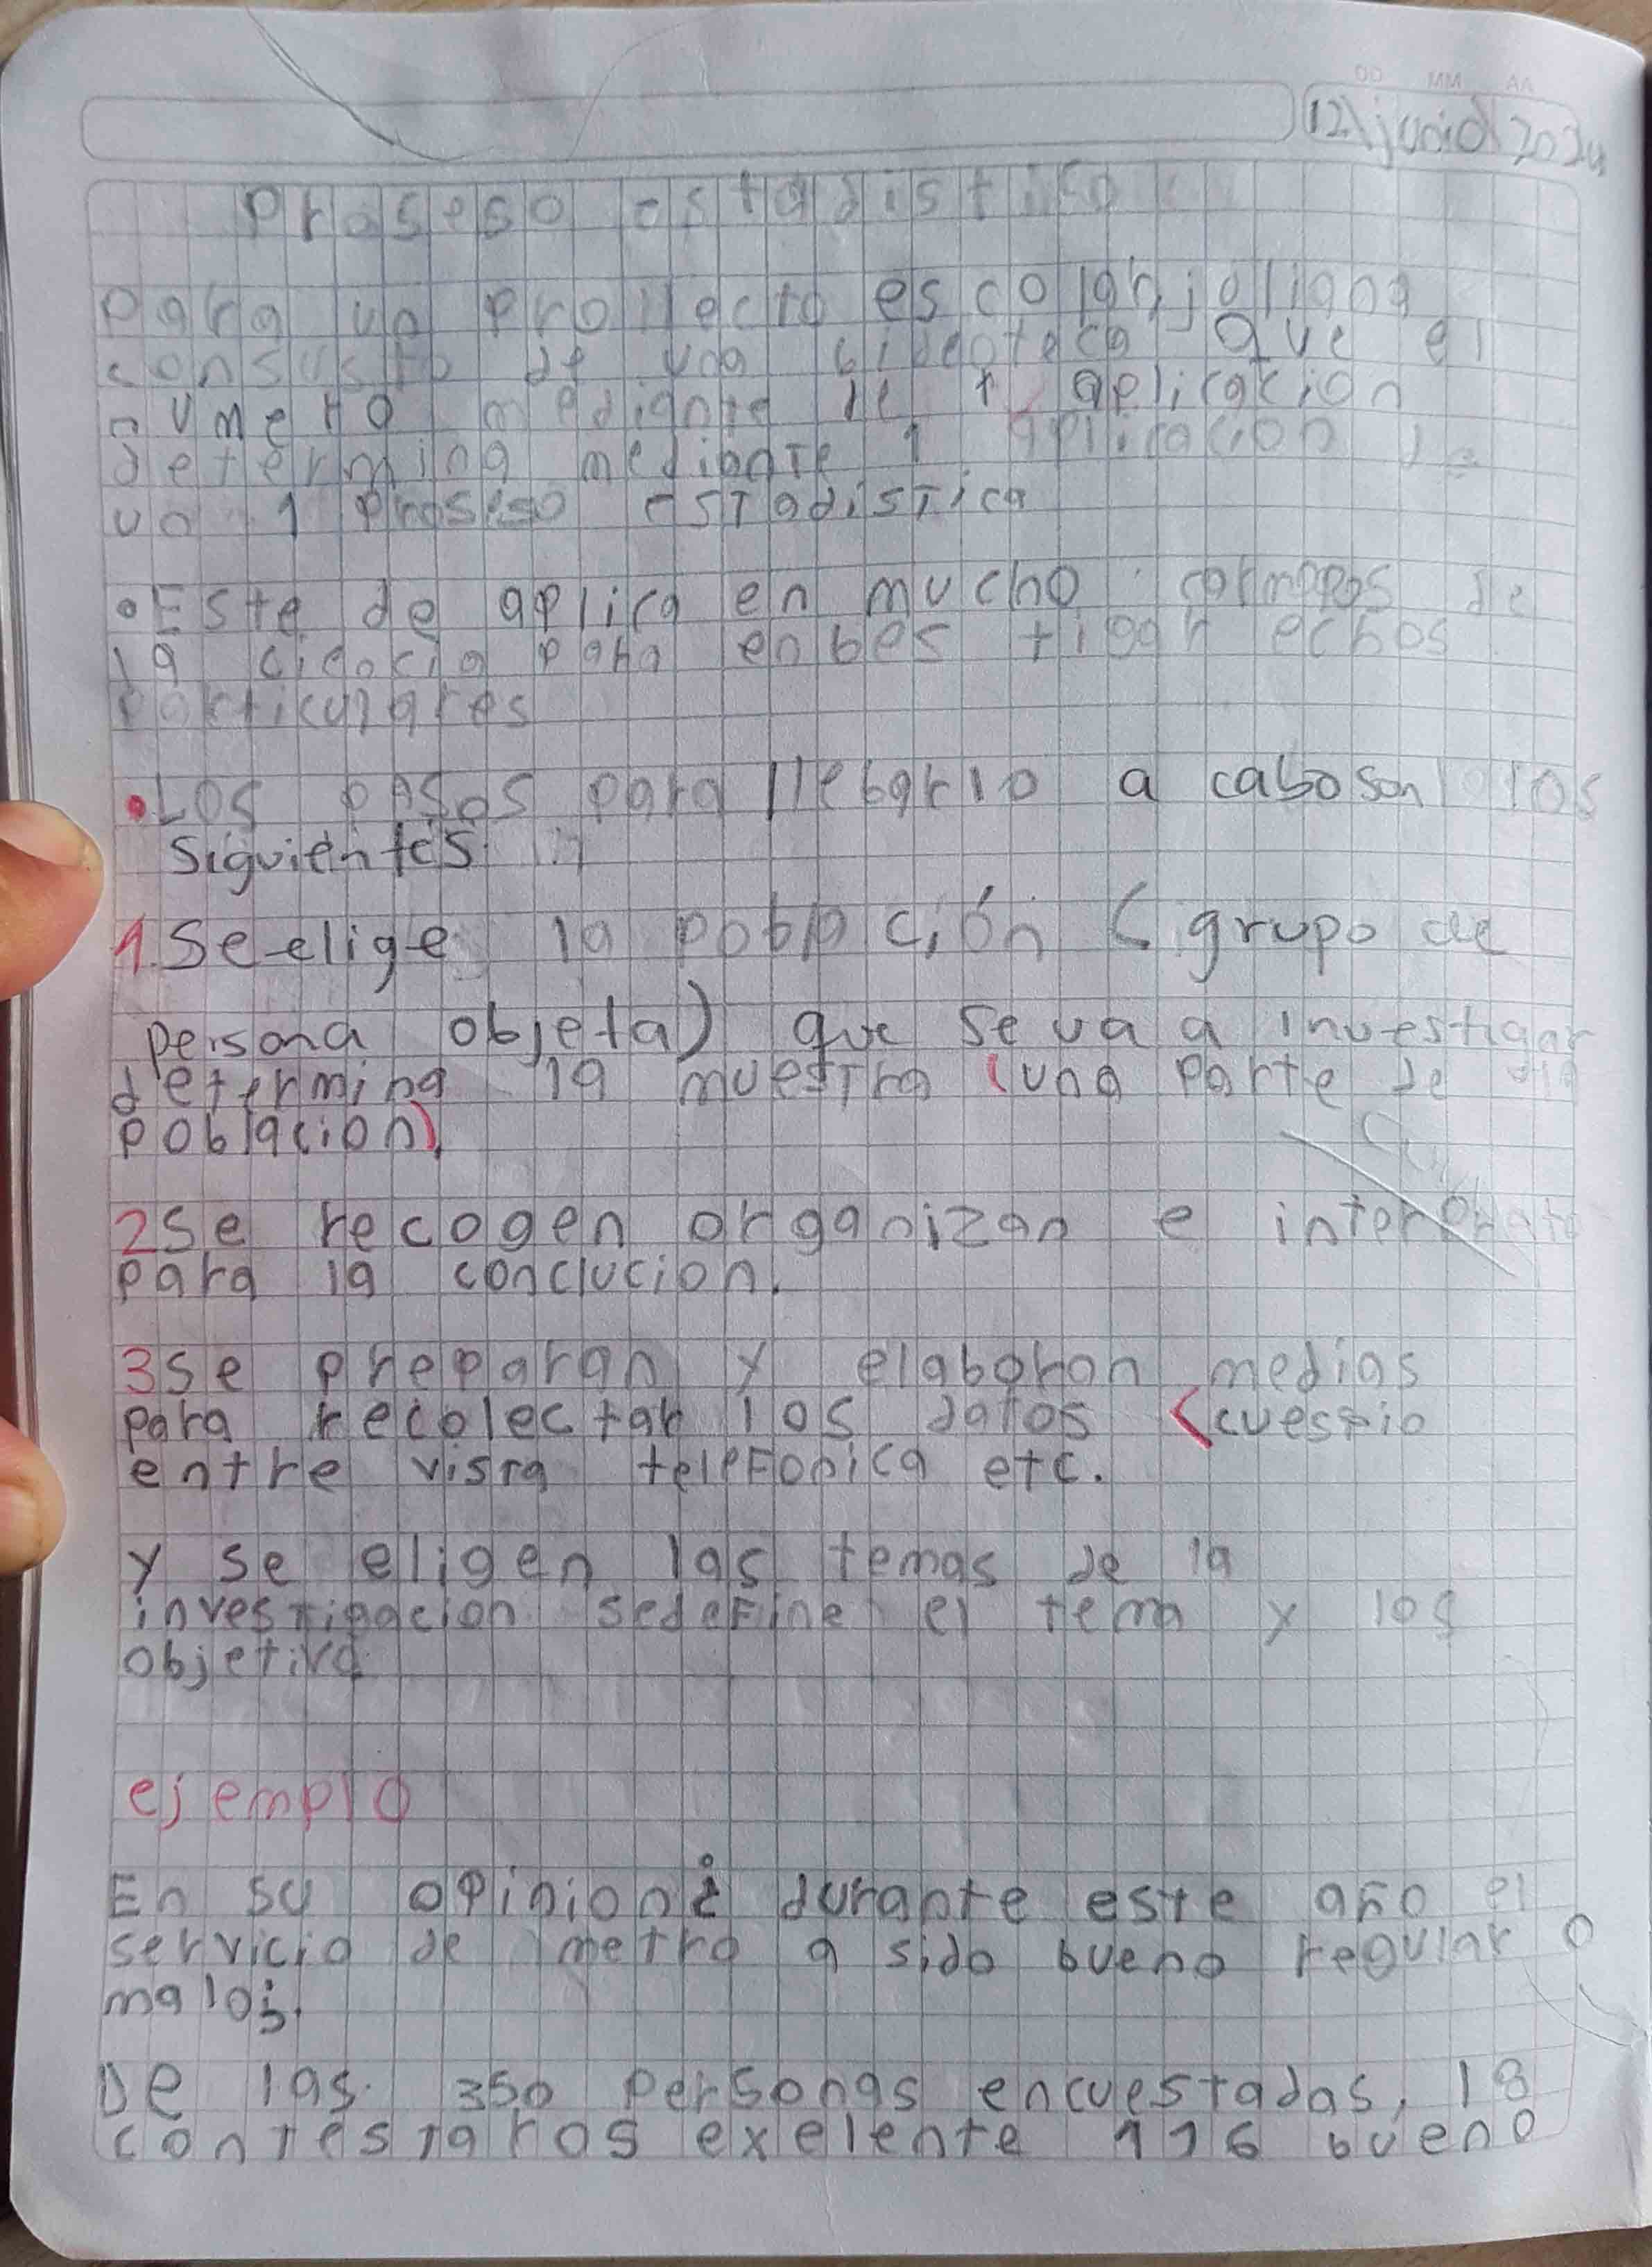 DD MM AA
12 junio 2024
Proseso estadistico
Para un prollecto escolar, joliana
consusto de una bideoteca que el
numero mediante de 1 aplicacion
determina mediante 1 aplicacion de
un 1 proseso estadistica
• Este de aplica en mucho cormopos de
la ciencia para enbes tigar echos
particulares
• Los pasos para llebarlo a cabo son los
siguientes:
1. Se elige la población (grupo de
persona objeta) que se va a investigar
determina la muestra (una parte de
poblacion).
2 Se recogen organizan e
para la conclucion.
3 Se preparan y elaboron medias
para recolectar los datos (cuestio
entre vista telefonica etc.
y se eligen las temas de la
investigacion sedefine el tema y los
objetiva
ejemplo
En su opinion ¿ durante este año el
servicio de metro a sido bueno regular o
malo?.
De las 350 personas encuestadas, 18
contestaros exelente 116 bueno